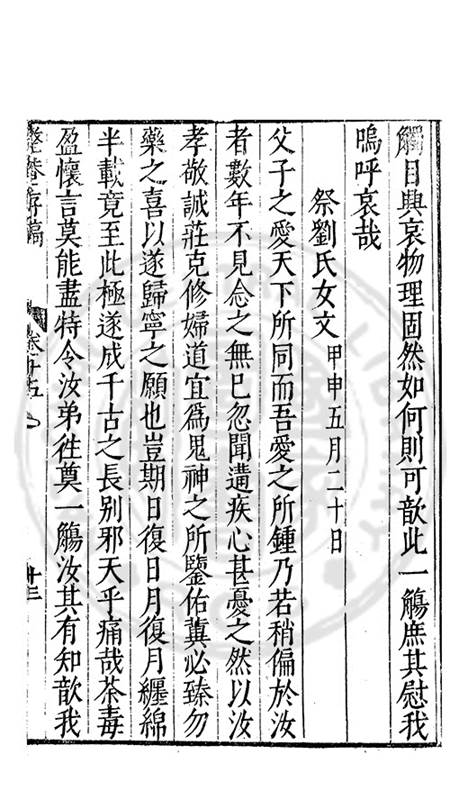 觸目興哀物理固然如何則可歆此一觴庶其慰我
嗚呼哀哉
祭劉氏女文甲申五月二十日
父子之愛天下所同而吾愛之所鍾乃若稍偏於汝
者數年不見念之無已忽聞遘疾心甚憂之然以汝
孝敬誠莊克修婦道宜爲鬼神之所鑒佑冀必臻勿
藥之喜以遂歸寧之願也豈期日復日月復月纒綿
半載竟至此極遂成千古之長别邪天乎痛哉荼毒
盈懷言莫能盡特令汝弟徃奠一觴汝其有知歆我
整菴存稿
卷十五
十三